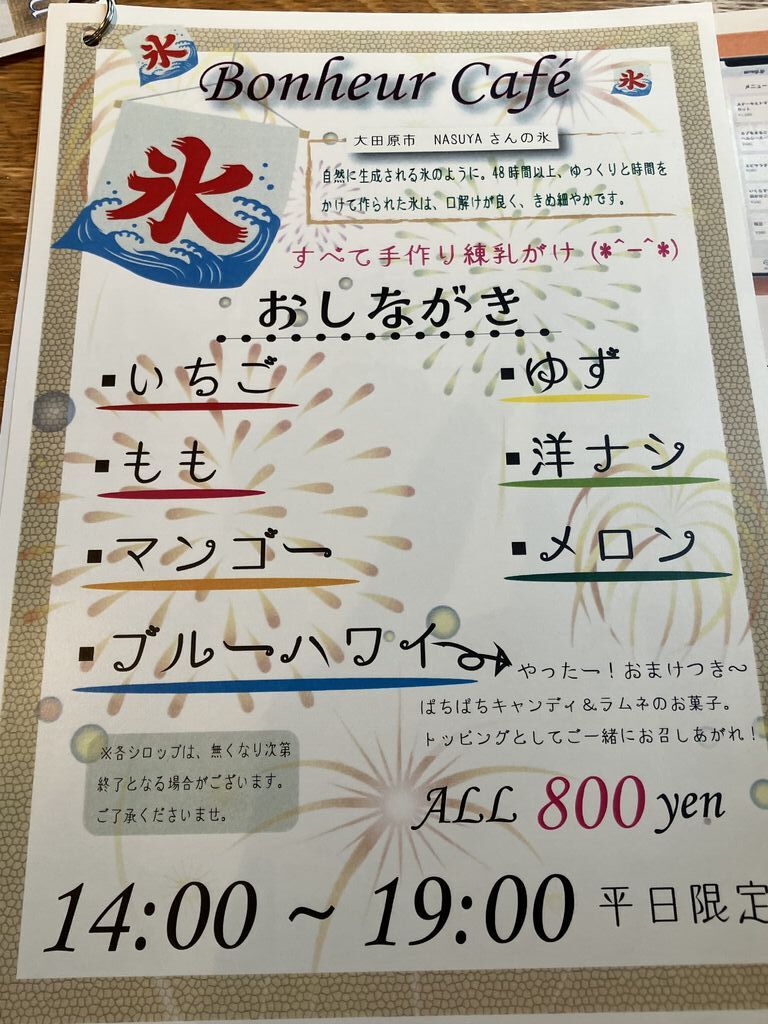 氷
氷
Bonheur Café
氷
大田原市 NASUYAさんの氷
自然に生成される氷のように。48時間以上、ゆっくりと時間を
かけて作られた氷は、口解けが良く、きめ細やかです。
すべて手作り練乳がけ (*^-^*)
おしながき
▪いちご
▪ゆず
▪もも
▪洋ナシ
▪マンゴー
▪メロン
▪ブルーハワイ
やったー！おまけつき～
ぱちぱちキャンディ＆ラムネのお菓子。
トッピングとしてご一緒にお召しあがれ！
※各シロップは、無くなり次第
終了となる場合がございます。
ご了承くださいませ。
ALL 800 yen
14:00 ~ 19:00 平日限定
メニュー